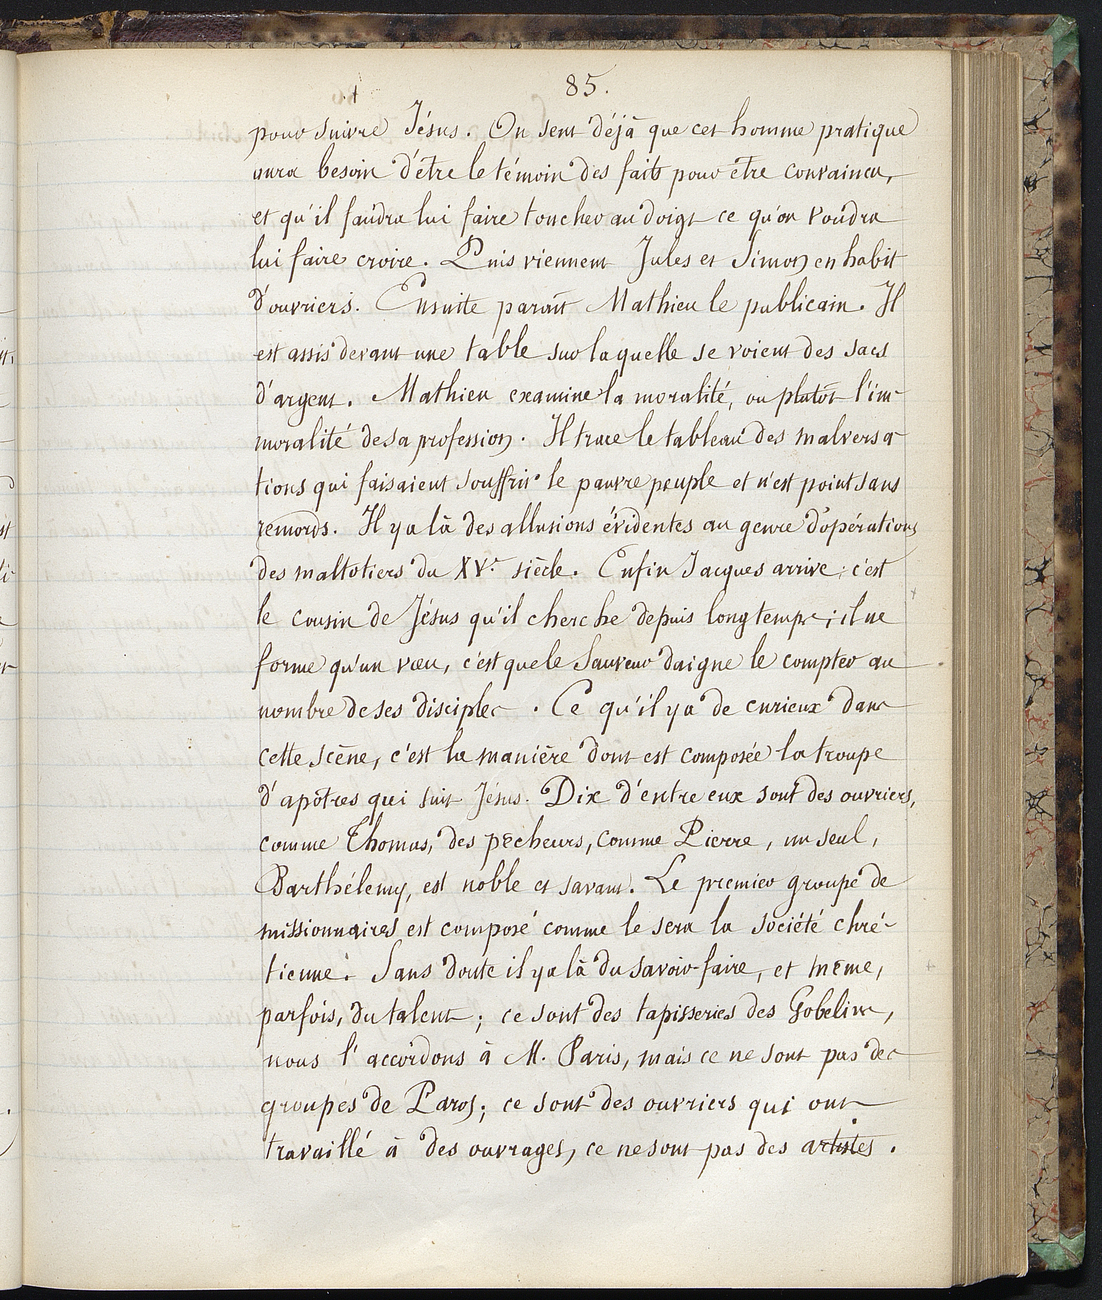 85.
pour suivre Jésus. On sent déjà que cet homme pratique
aura besoin d'être le témoin des faits pour être convaincu,
et qu'il faudra lui faire toucher au doigt ce qu'on voudra
lui faire croire. Puis viennent Jules et Simon en habit
d'ouvriers. Ensuite paraît Mathieu le publicain. Il
est assis devant une table sur laquelle se voient des sacs
d'argent. Mathieu examine la moralité, ou plutôt l'im-
moralité de sa profession. Il trace le tableau des malversa-
tions qui faisaient souffrir le pauvre peuple et n'est point sans
remords. Il y a là des allusions évidentes au genre d'opérations
des maltotiers du XVe siècle. Enfin Jacques arrive; c'est
le cousin de Jésus qu'il cherche depuis longtemps; il ne
forme qu'un vœu, c'est que le Sauveur daigne le compter au
nombre de ses disciples. Ce qu'il y a de curieux dans
cette scène, c'est la manière dont est composée la troupe
d'apôtres qui suit Jésus. Dix d'entre eux sont des ouvriers,
comme Thomas, des pêcheurs, comme Pierre, un seul,
Barthélemy, est noble et savant. Le premier groupe de
missionnaires est composé comme le sera la société chré-
tienne. Sans doute il y a là du savoir-faire, et même,
parfois, du talent; ce sont des tapisseries des Gobelins,
nous l'accordons à M. Paris, mais ce ne sont pas des
groupes de Paros; ce sont des ouvriers qui ont
travaillé à des ouvrages, ce ne sont pas des artistes.